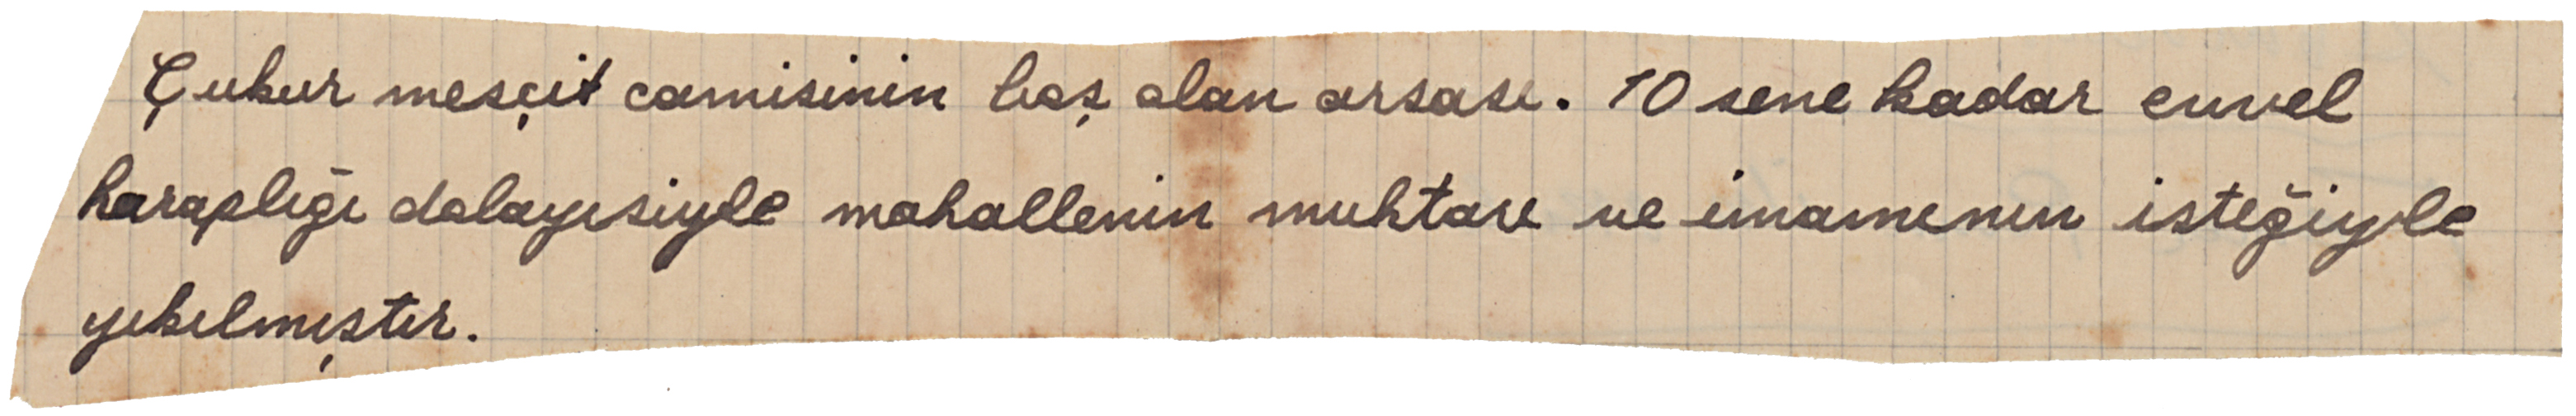 Çukur mesçit camisinin boş olan arsası. 10 sene kadar evvel
haraplığı dolayısiyle mahallenin muhtarı ve imamının isteğiyle
yıkılmıştır.